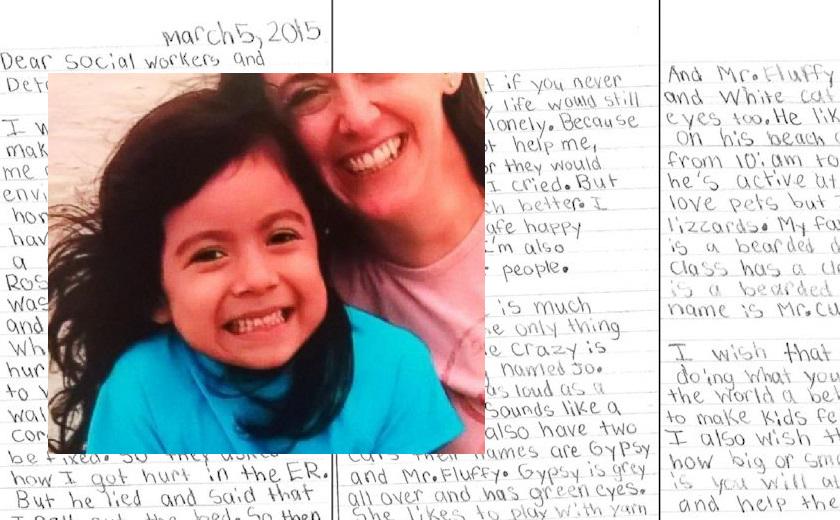 March 5, 2015
Dear Social workers and
Det
I w
mak
me
envi
hor
hav
a
Ros
was
and
Wh
hur
to
wal
Con
be fixed. So they
how I got hurt in the ER.
But he lied and said that
the bed. So then
if you never
life would still
lonely. Because
help me,
or they would
I cried. But
better. I
safe happy
I'm also
people.
is much
only thing
crazy is
named Jo.
as loud as a
Sounds like a
also have two
cats their names are GYPSY
and Mr. Fluffy. Gypsy is grey
all over and has green eyes.
She likes to play with yarn
And Mr. Fluffy
and White cat
eyes too. He lik
On his beach
from 10: am to
he's active at
love pets but
lizzards. My fa
is a bearded d
Class has a cl
is a bearded
name is Mr. Cu
I wish that
doing what you
the world a be
to make kids fe
I also wish th
how big or sma
is you will al
and help the